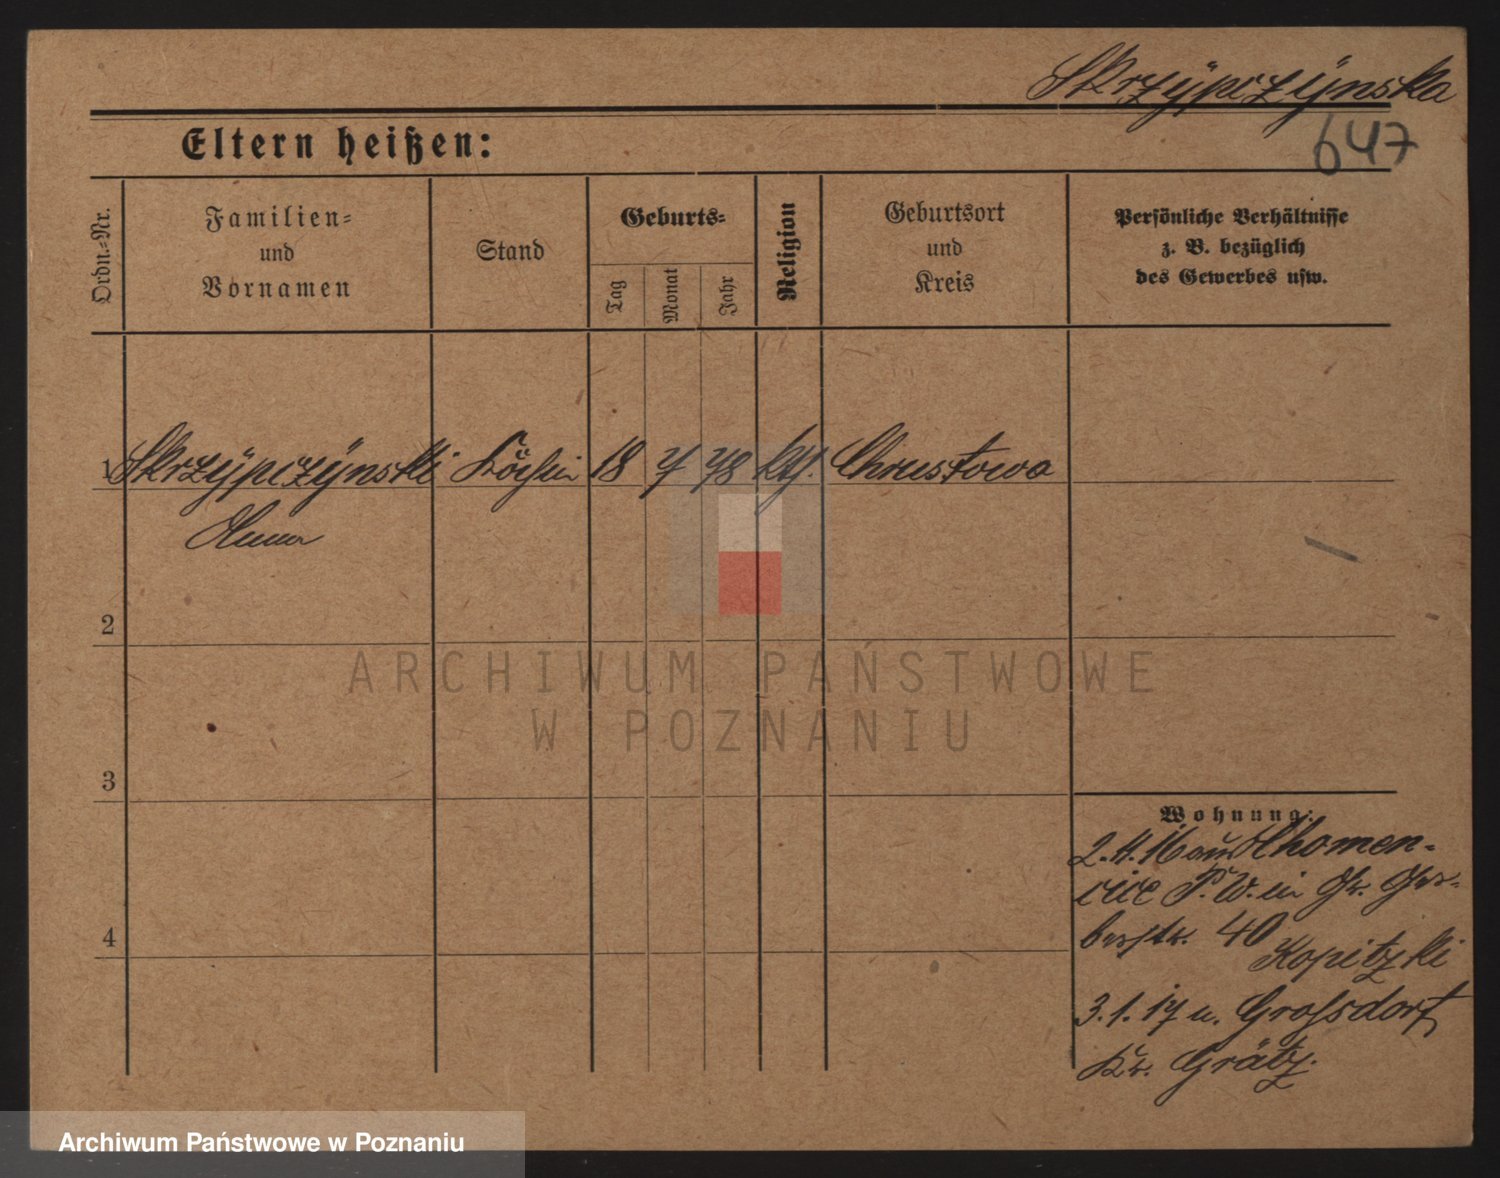 Skrzÿpczÿnska
647
Eltern heißen:
Ordn.-Nr.
Familien-
und
Vornamen
Stand
Geburts-
Tag
Monat
Jahr
Religion
Geburtsort
und
Kreis
Persönliche Verhältnisse
z. B. bezüglich
des Gewerbes usw.
1 Skrzÿpczÿnski Köchin 18 7 78 kth. Chrustowo
Anna
2
3
4
Wohnung:
2.4.16 aus Chomen-
cice P. W. in Gr. Ger-
berstr. 40
Kopitzki
3.1.17 n. Grossdorf
Kr. Grätz.
ARCHIWUM PAŃSTWOWE
W POZNANIU
Archiwum Państwowe w Poznaniu